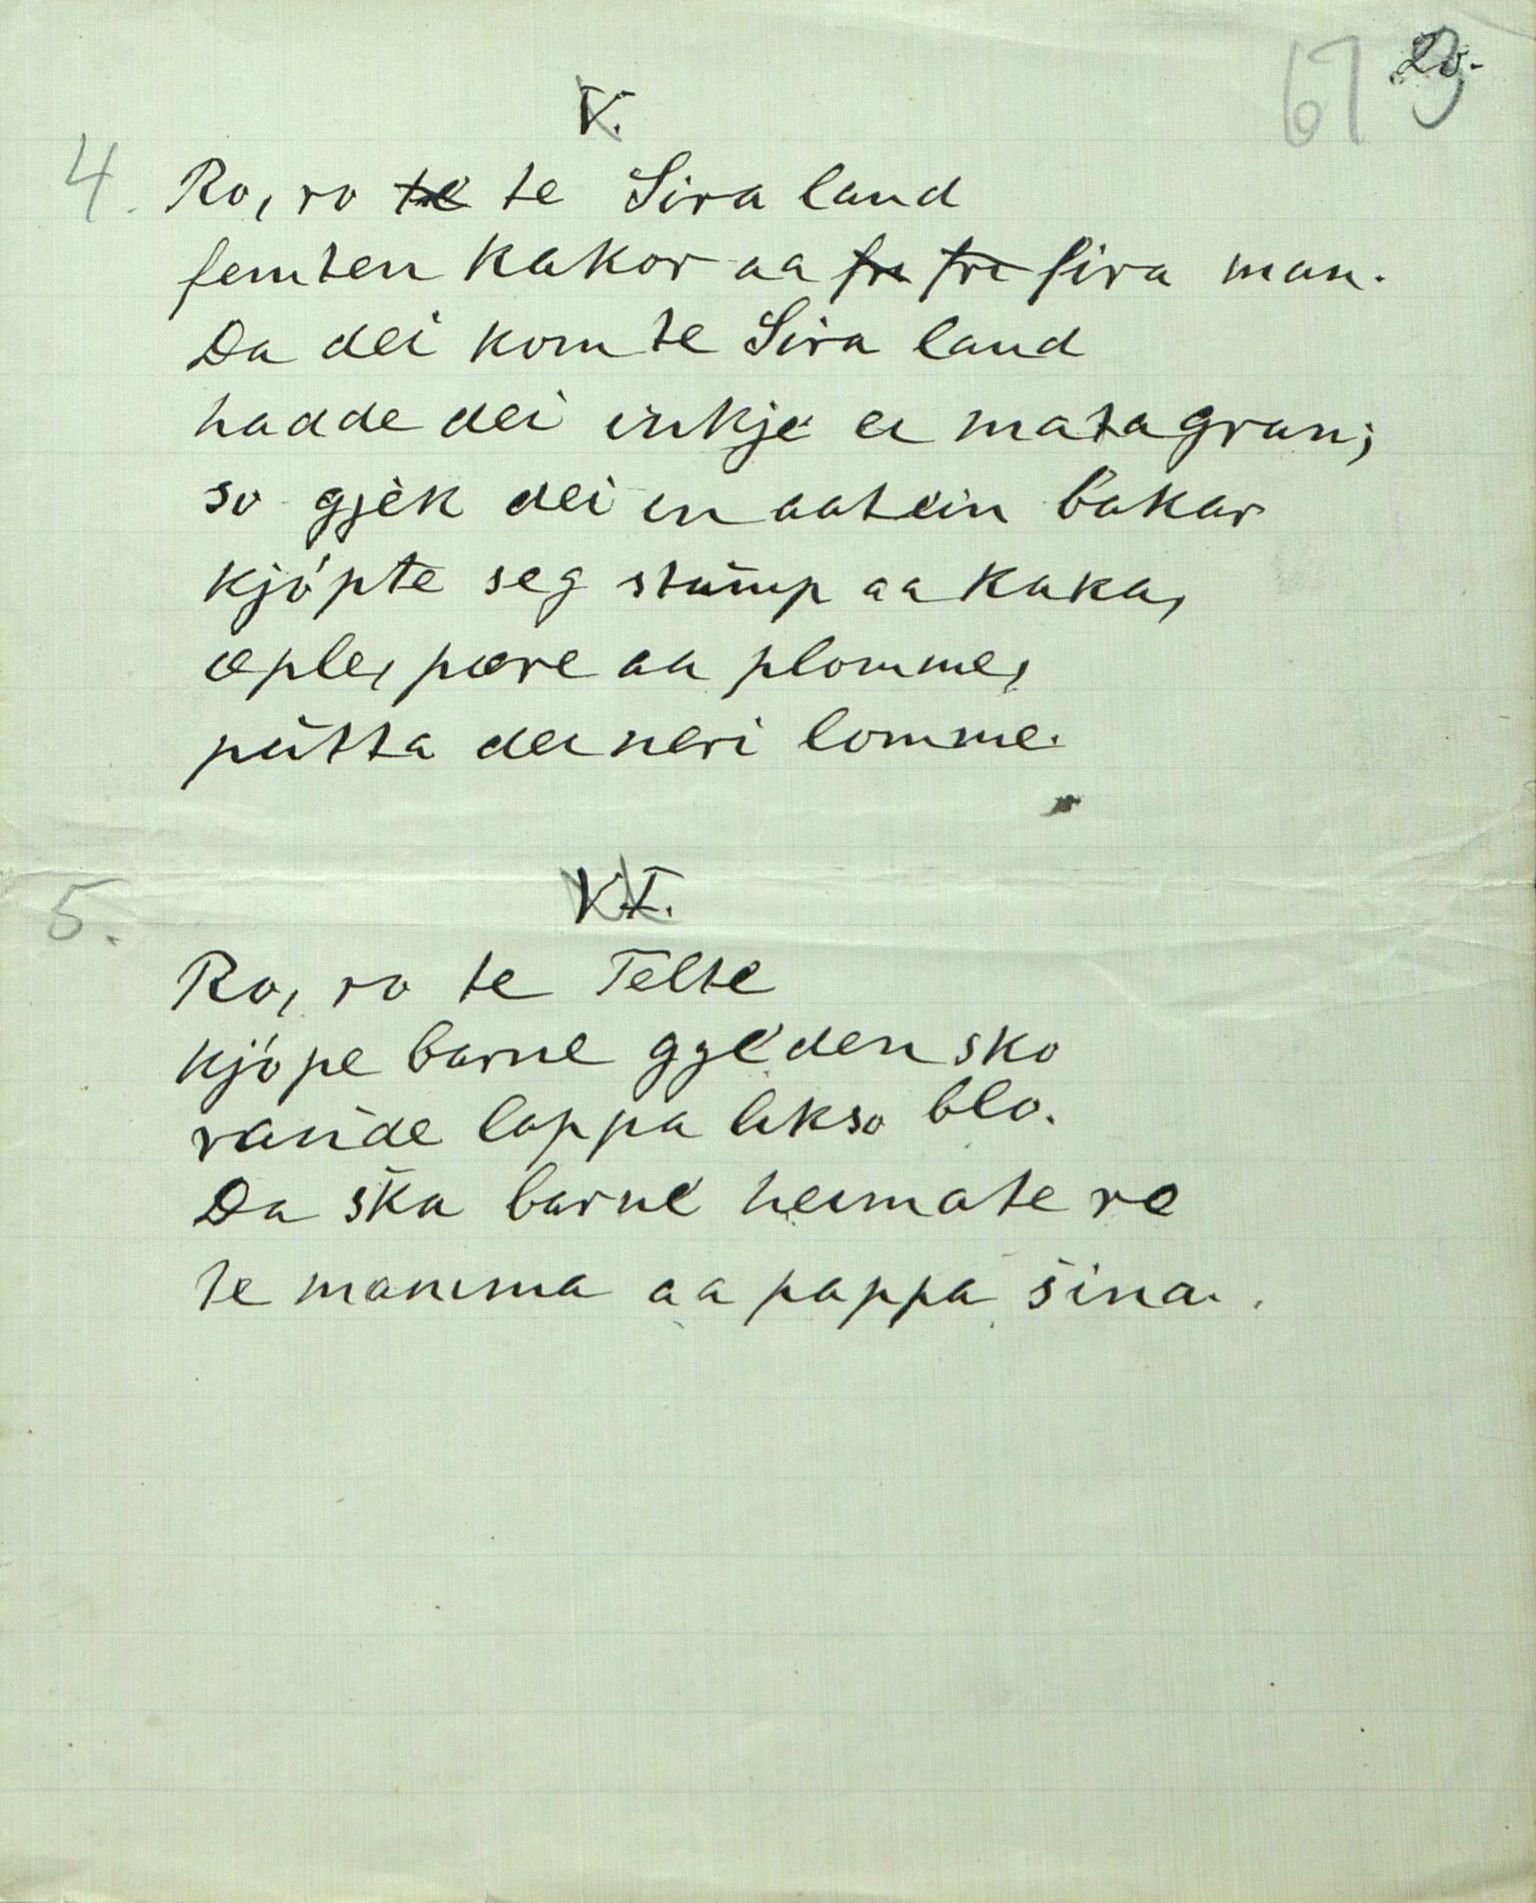 67 20.
V.
4. Ro, ro te te Sira land
femten kakor aa fri fri fira man.
Da dei kom te Sira land
hadde dei inkje ei matagran;
so gjek dei in aat ein bakar
kjøpte seg stump aa kaka,
æple, pære aa plomme,
pütta dei neri lomme.
VI.
5.
Ro, ro te Telte
kjøpe barne gyé den sko
raude lappa likso blo.
Da ska barne heimate ro
te mamma aa pappa sina.